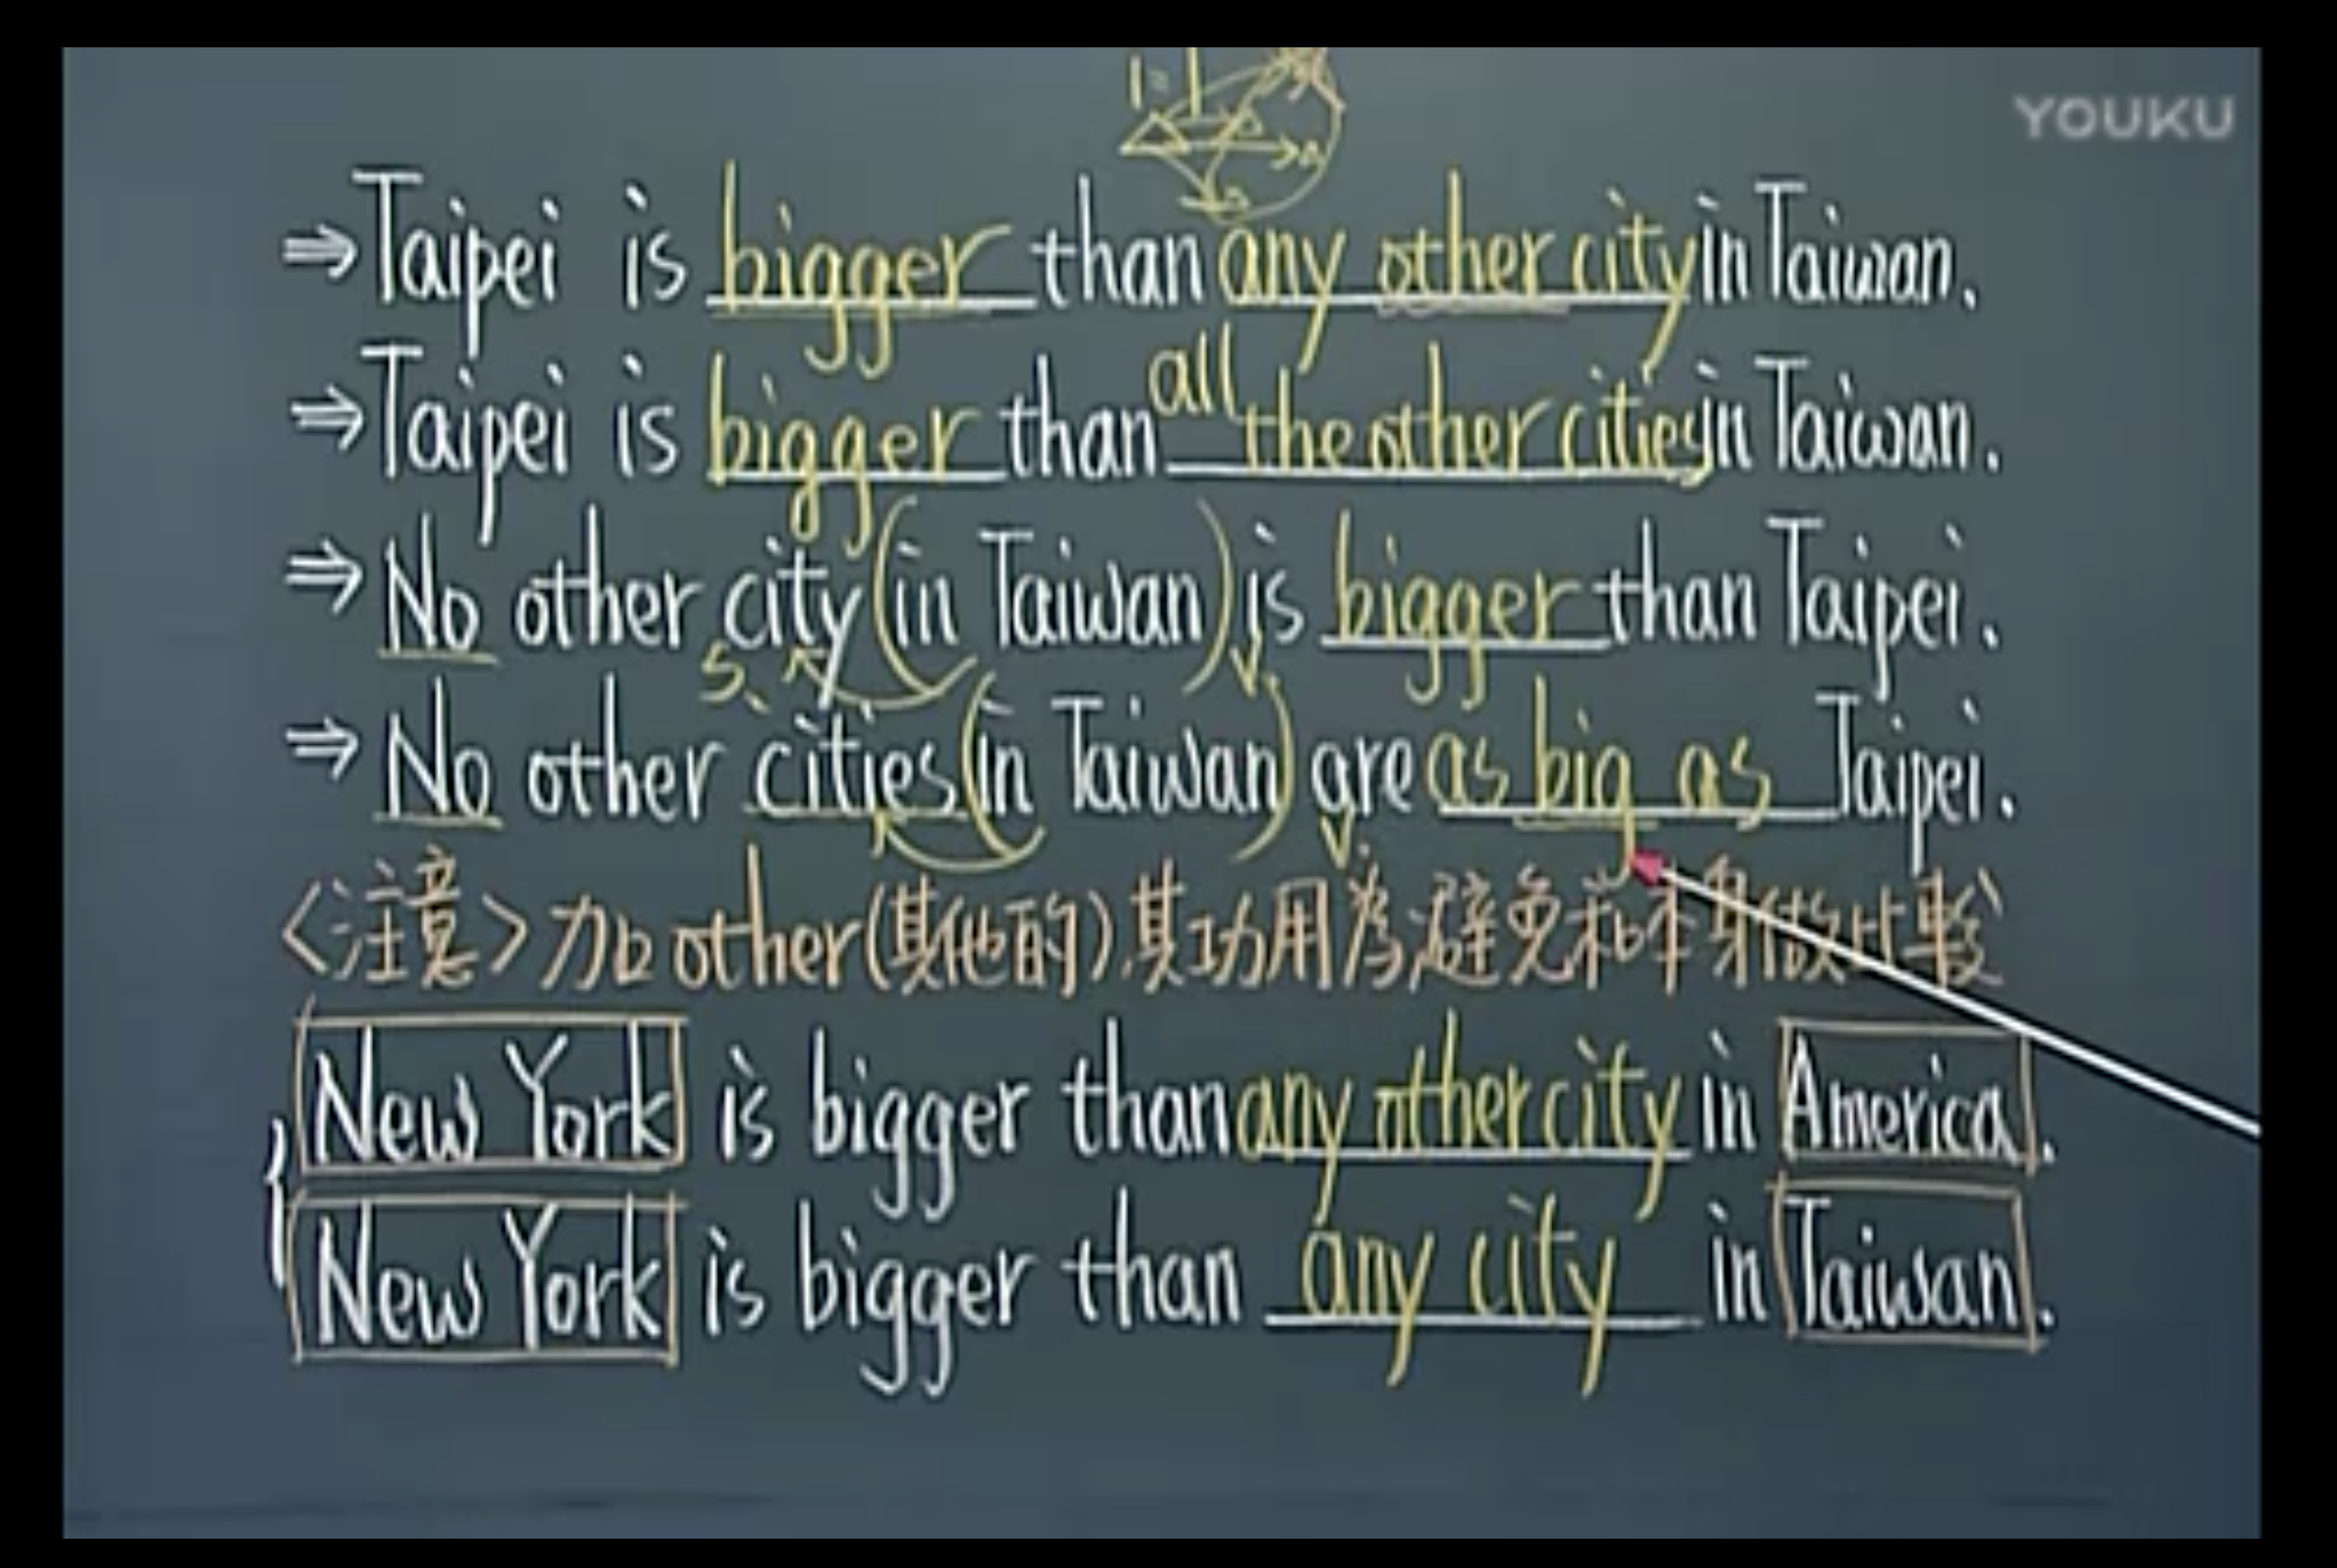 YOUKU
1=1
⇒Taipei is bigger than any other city in Taiwan.
⇒Taipei is bigger than all the other cities in Taiwan.
⇒No other city (in Taiwan) is bigger than Taipei.
S. V.
⇒No other cities (in Taiwan) are as big as Taipei.
V.
〈注意〉加other(其他的),其功用為避免和本身做比較
New York is bigger than any other city in America.
New York is bigger than any city in Taiwan.